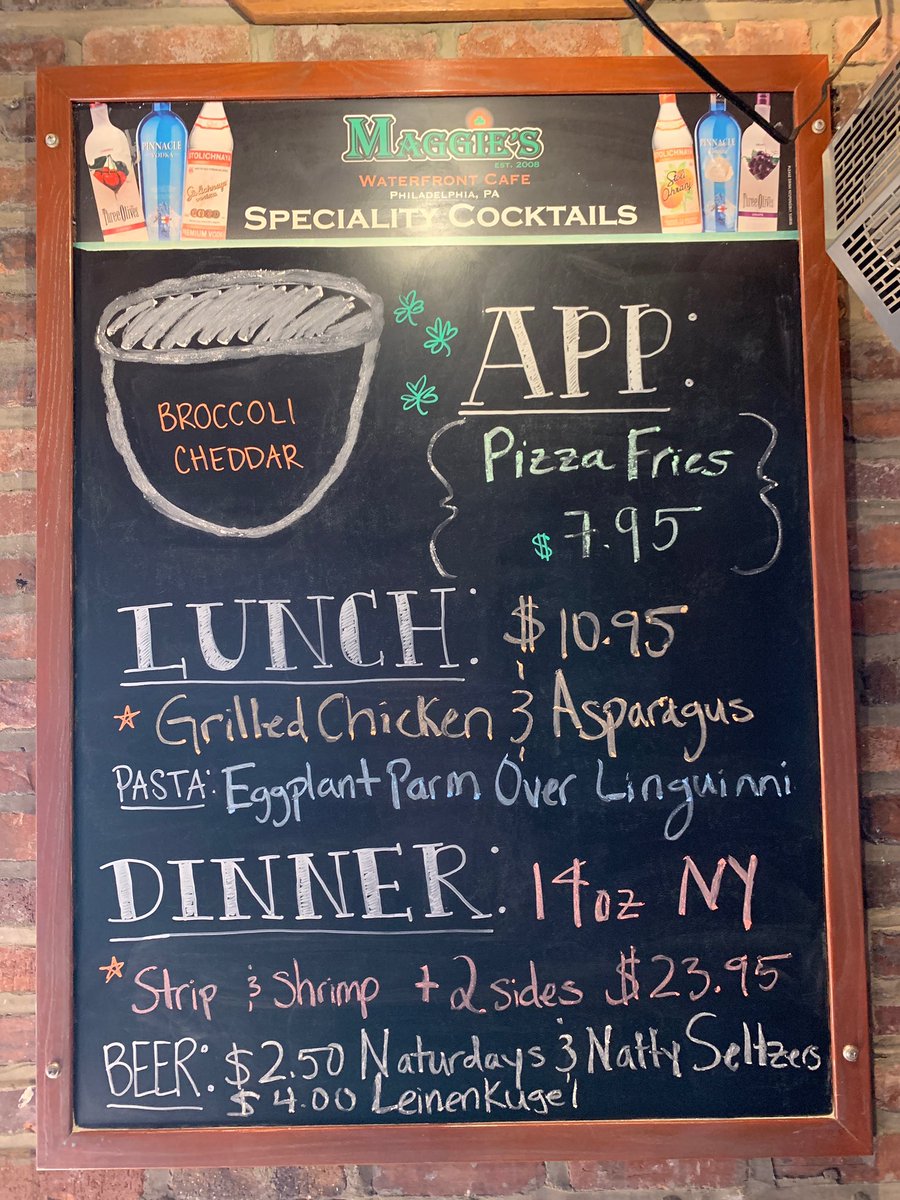 MAGGIE'S
EST. 2008
WATERFRONT CAFE
PHILADELPHIA, PA
SPECIALITY COCKTAILS
ThreeOlives
PINNACLE
VODKA
STOLICHNAYA
Stolichnaya
GOLD
PREMIUM VODKA
STOLICHNAYA
Stoli
Ohranj
PINNACLE
ThreeOlives
GRAPE
BROCCOLI
CHEDDAR
APP:
Pizza Fries
$7.95
LUNCH: $10.95
Grilled Chicken & Asparagus
PASTA: Eggplant Parm Over Linguinni
DINNER: 14oz NY
Strip & Shrimp + 2 sides $23.95
BEER: $2.50 Naturdays & Natty Seltzers
$4.00 Leinenkugel